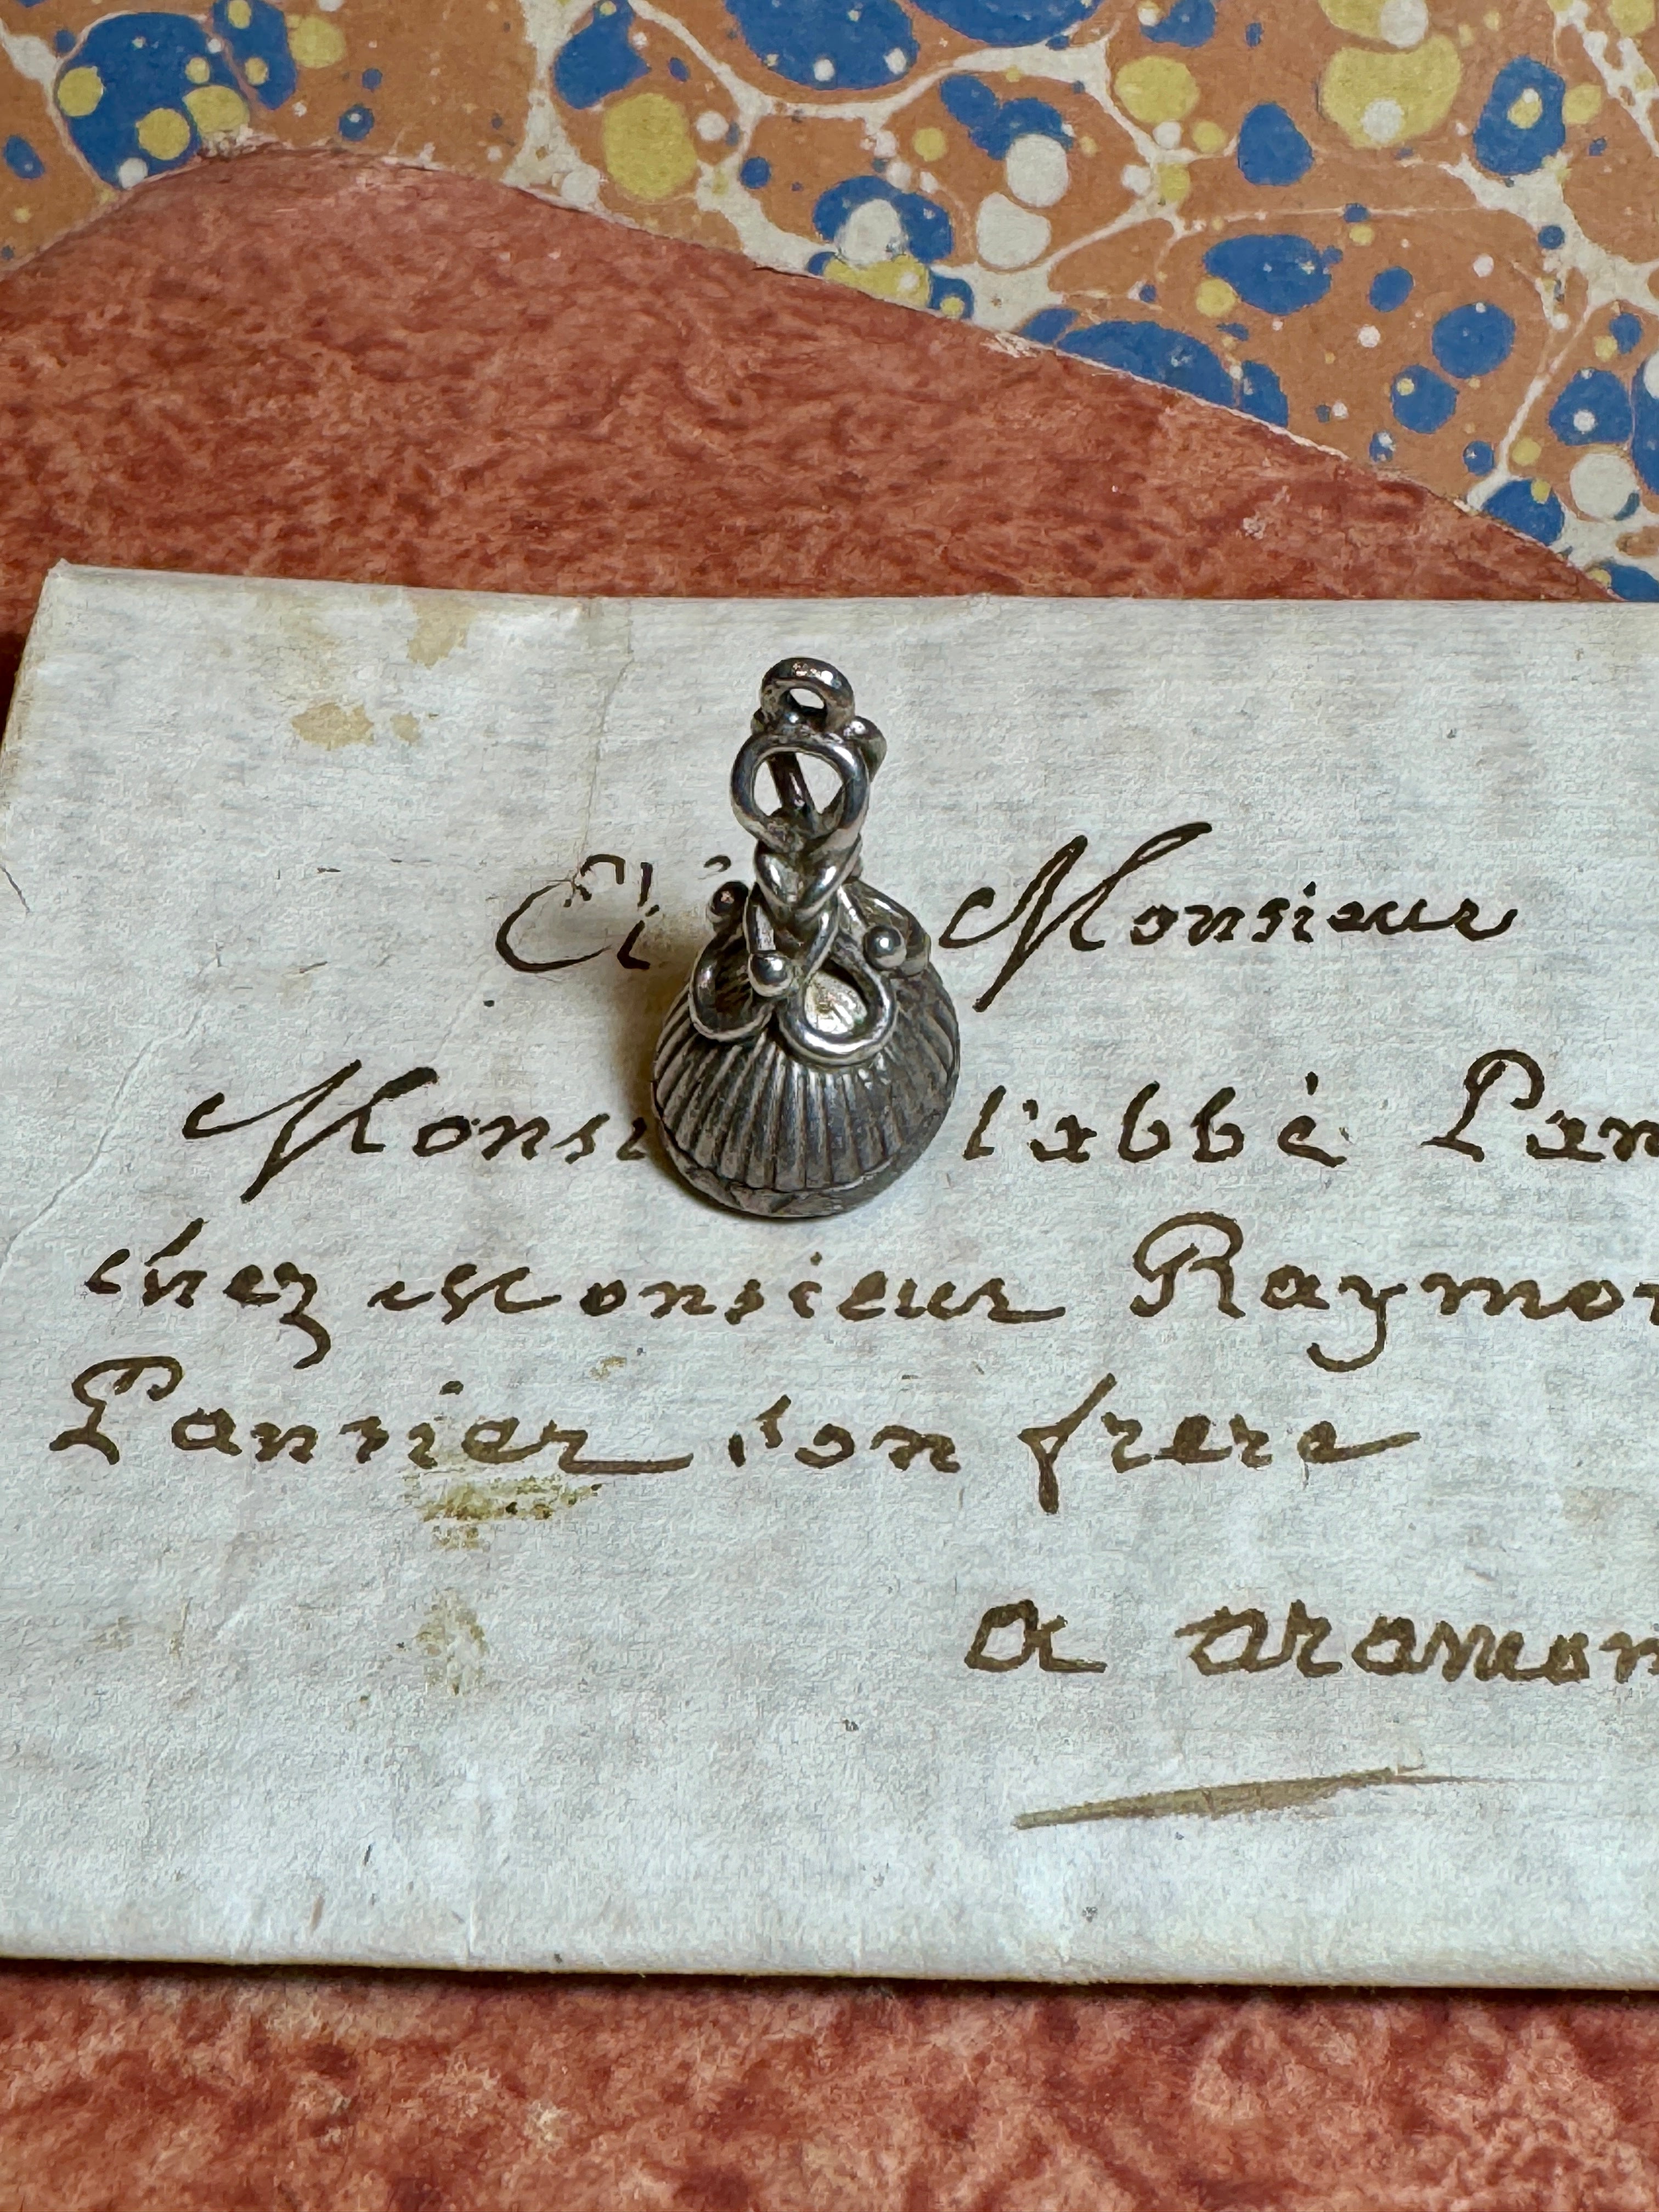 A Monsieur
Monsi l'abbé Pan
chez Monsieur Raymon
Pansier son frere
a aramon